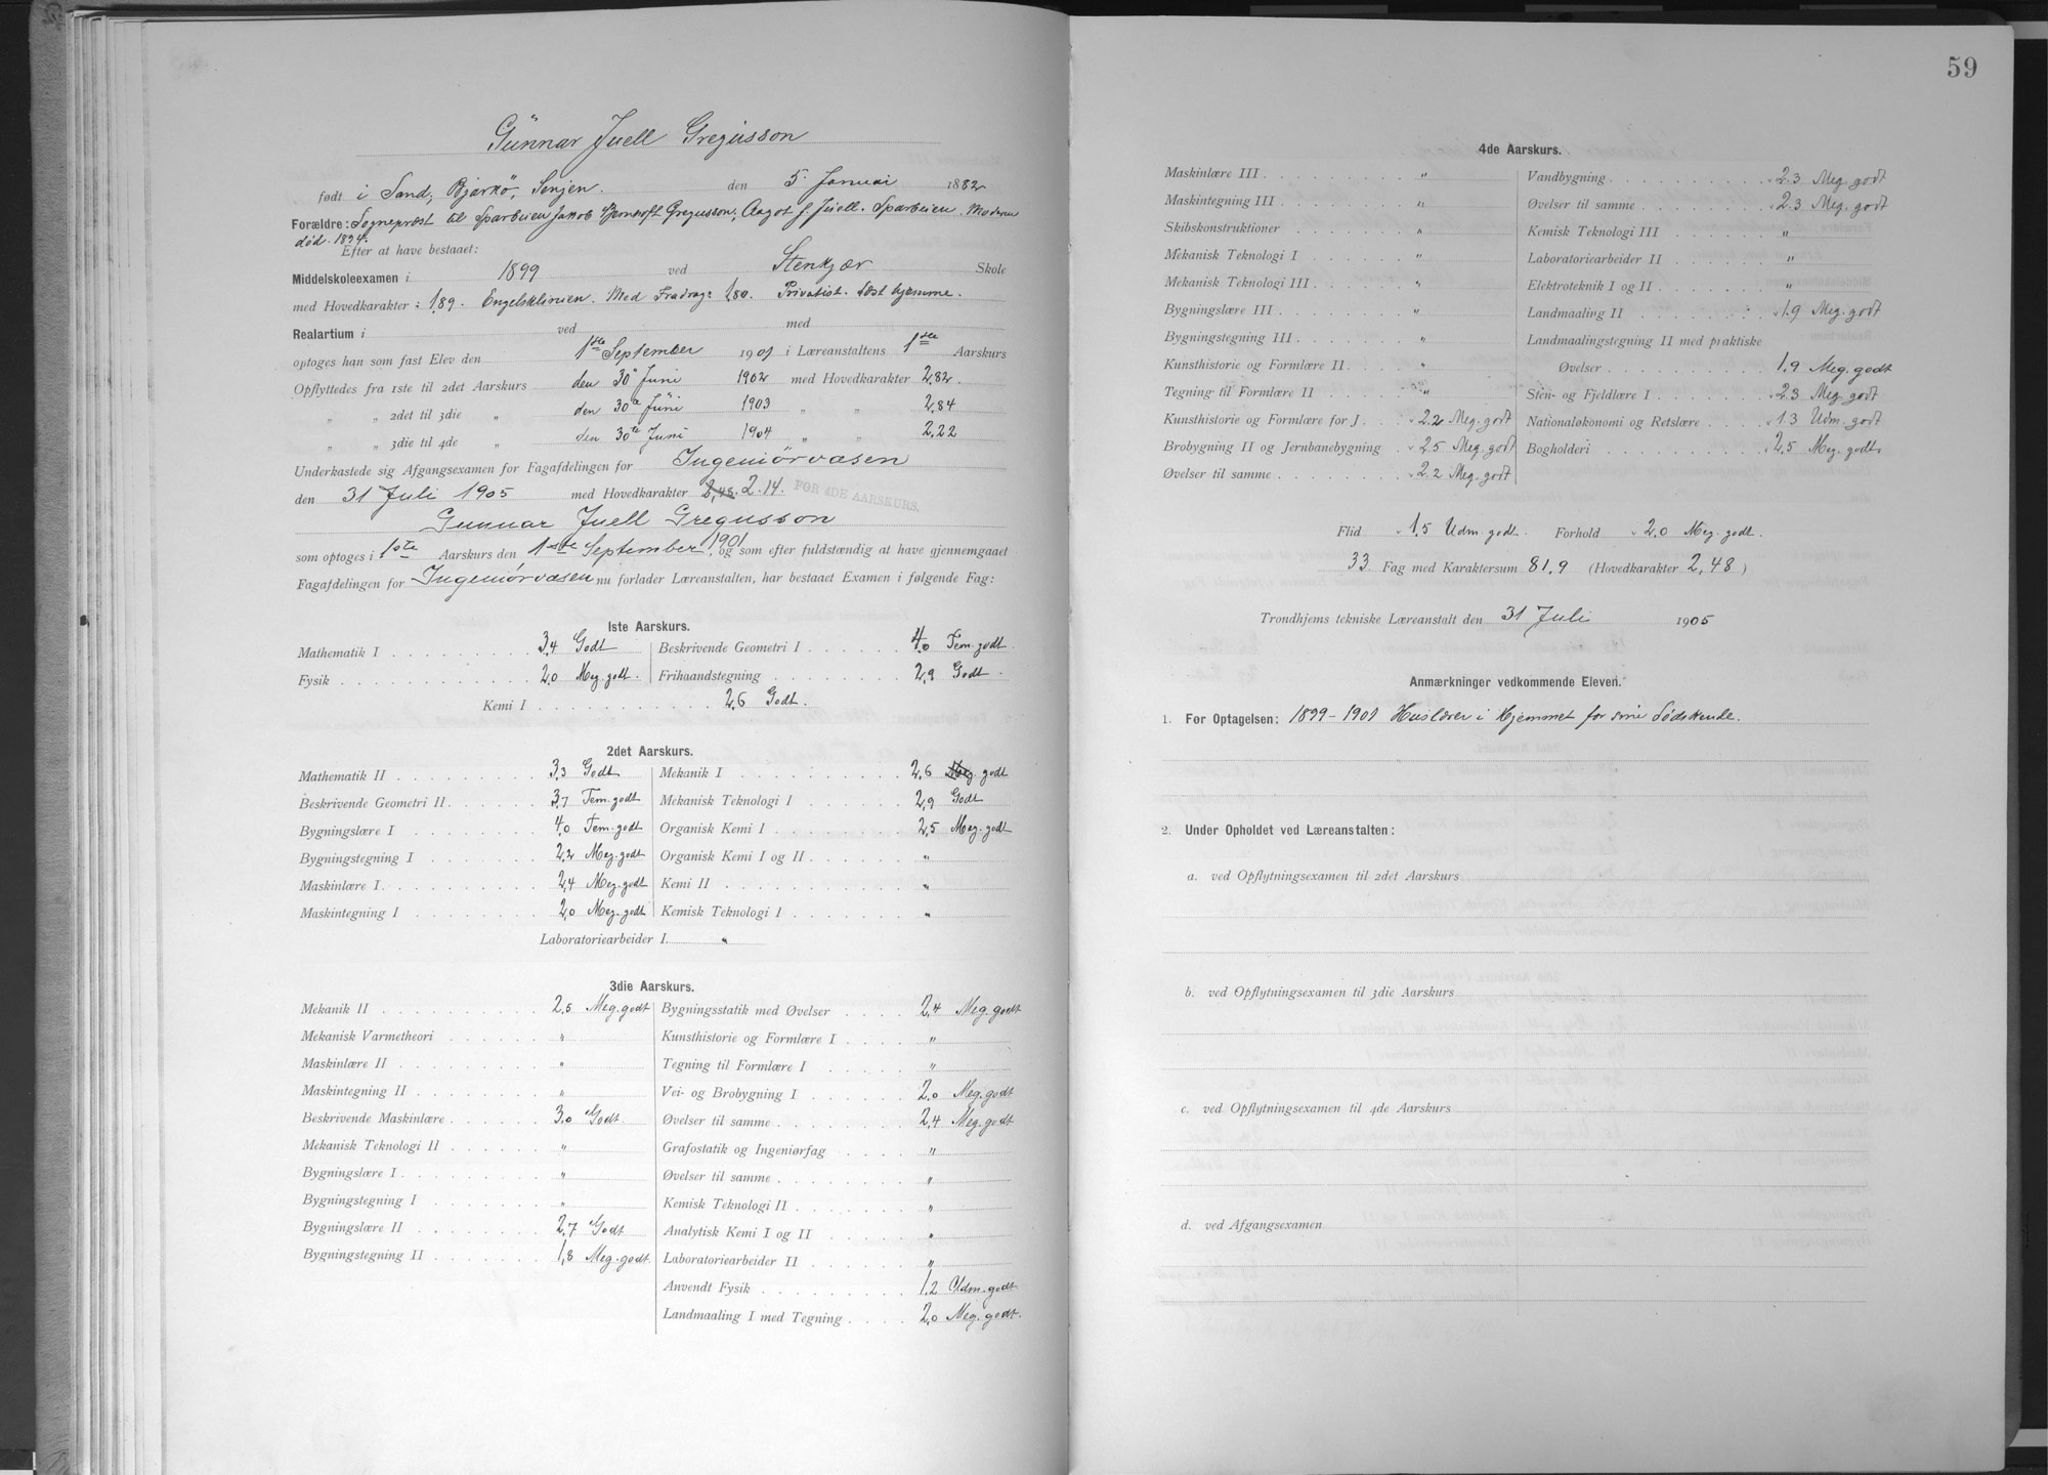 59
Günnar Juell Gregusson
født i Sand, Bjarkö, Senjen. den 5. Januar 1882
Forældre: Sognepræst til Sparbuen Jakob Gregusson; Aagot f. Juell. Sparbuen. Moderen
død. 1894.
Efter at have bestaaet:
Middelskoleexamen i 1899 ved Stenkjær Skole
med Hovedkarakter: 1,89. Engelsklinien. Med Fradrag: 1,80. Privatist. Læst hjemme.
Realartium i ved med
optoges han som fast Elev den 1ste September 1901 i Læreanstaltens 1ste Aarskurs
Opflyttedes fra 1ste til 2det Aarskurs den 30te Juni 1902 med Hovedkarakter 2,82.
„ „ 2det til 3die „ den 30te Jüni 1903 „ „ 2,84
„ „ 3die til 4de „ den 30te Juni 1904 „ „ 2,22
Underkastede sig Afgangsexamen for Fagafdelingen for Ingeniörvæsen
den 31 Juli 1905 med Hovedkarakter 2,48. 2.14. FOR 4DE AARSKURS.
Gunnar Juell Gregusson
som optoges i 1ste Aarskurs den 1ste September 1901, og som efter fuldstændig at have gjennemgaaet
Fagafdelingen for Ingeniørvæsen nu forlader Læreanstalten, har bestaaet Examen i følgende Fag:
1ste Aarskurs.
Mathematik I 3,4 Godt Beskrivende Geometri I 4,0 Tem. godt.
Fysik 2,0 Meg. godt. Frihaandstegning 2,9 Godt.
Kemi I 2,6 Godt.
2det Aarskurs.
Mathematik II 3,3 Godt Mekanik I 2,6 Meg godt
Beskrivende Geometri II 3,7 Tem. godt Mekanisk Teknologi I 2,9 Godt
Bygningslære I 4,0 Tem. godt Organisk Kemi I 2,5 Meg. godt
Bygningstegning I 2,2 Meg. godt Organisk Kemi I og II „
Maskinlære I 2,4 Meg. godt Kemi II „
Maskintegning I 2,0 Meg. godt Kemisk Teknologi I „
Laboratoriearbeider I „
3die Aarskurs.
Mekanik II 2,5 Meg. godt Bygningsstatik med Øvelser 2,4 Meg. godt
Mekanisk Varmetheori „ Kunsthistorie og Formlære I „
Maskinlære II „ Tegning til Formlære I „
Maskintegning II „ Vei- og Brobygning I 2,0 Meg. godt
Beskrivende Maskinlære 3,0 Godt. Øvelser til samme 2,4 Meg. godt
Mekanisk Teknologi II „ Grafostatik og Ingeniørfag „
Bygningslære I „ Øvelser til samme „
Bygningstegning I „ Kemisk Teknologi II „
Bygningslære II 2,7 Godt Analytisk Kemi I og II „
Bygningstegning II 1,8 Meg. godt. Laboratoriearbeider II „
Anvendt Fysik 1,2 Udm. godt
Landmaaling I med Tegning 2,0 Meg. godt.
4de Aarskurs.
Maskinlære III „ Vandbygning 2.3 Meg. godt
Maskintegning III „ Øvelser til samme 2.3 Meg. godt
Skibskonstruktioner „ Kemisk Teknologi III „
Mekanisk Teknologi I „ Laboratoriearbeider II „
Mekanisk Teknologi III „ Elektroteknik I og II „
Bygningslære III „ Landmaaling II 1.9 Meg. godt
Bygningstegning III „ Landmaalingstegning II med praktiske
Kunsthistorie og Formlære II „ Øvelser 1.9 Meg. godt
Tegning til Formlære II „ Sten- og Fjeldlære I 2.3 Meg. godt
Kunsthistorie og Formlære for J. 2.2 Meg. godt Nationaløkonomi og Retslære 1.3 Udm. godt
Brobygning II og Jernbanebygning 2.5 Meg. godt Bogholderi 2,5 Meg. godt.
Øvelser til samme 2.2 Meg. godt
Flid 1.5 Udm. godt. Forhold 2,0 Meg. godt.
33 Fag med Karaktersum 81,9 (Hovedkarakter 2,48)
Trondhjems tekniske Læreanstalt den 31 Juli 1905
Anmærkninger vedkommende Eleven.
1. Før Optagelsen: 1899-1901 Huslærer i Hjemmet for sine Sødskende.
2. Under Opholdet ved Læreanstalten:
a. ved Opflytningsexamen til 2det Aarskurs
b. ved Opflytningsexamen til 3die Aarskurs
c. ved Opflytningsexamen til 4de Aarskurs
d. ved Afgangsexamen